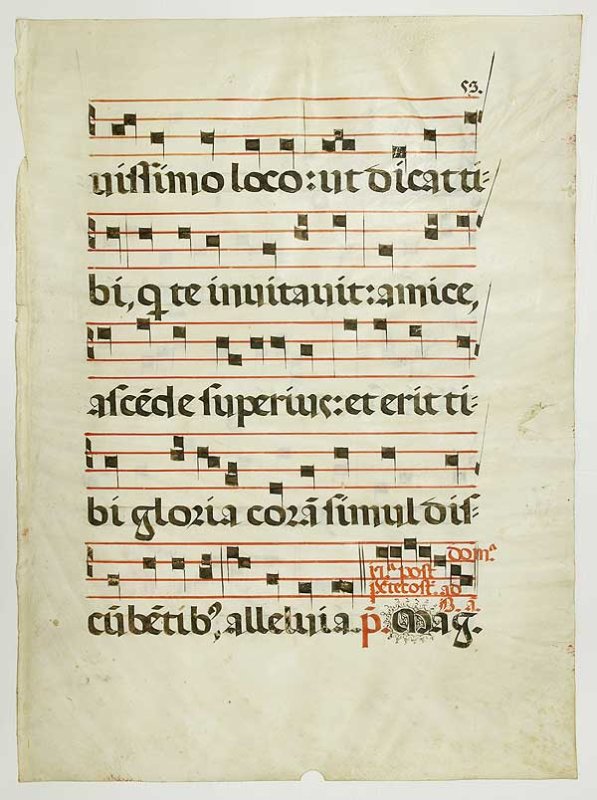 53.
uissimo loco: ut dicat ti-
bi, q te inuitauit: amice,
ascēde superius: et erit ti-
bi gloria corā simul dis-
domᵃ
17ᵃ post
pētecost. ad
B. a.
cūbētibꝰ, alleluia. p̄. Mag.